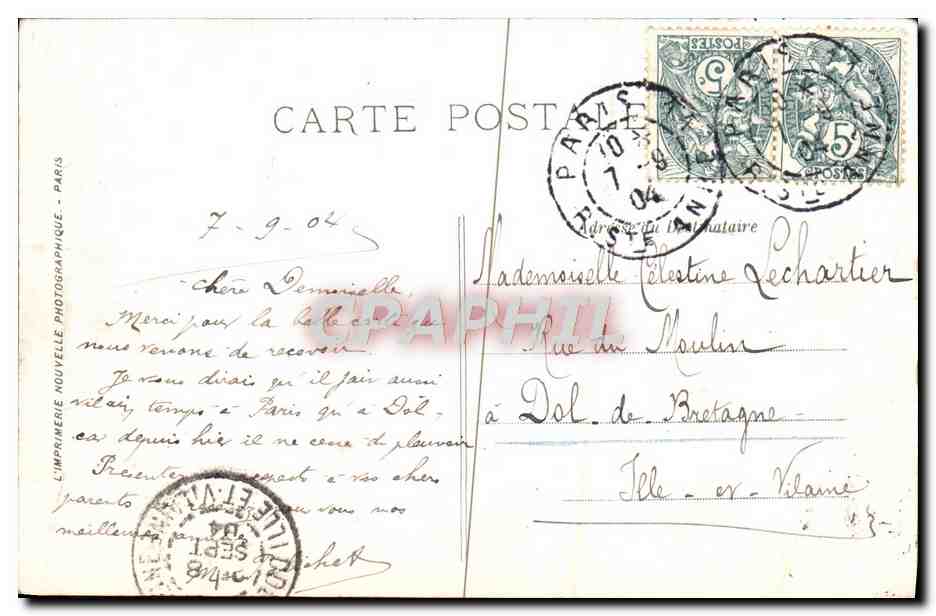 CARTE POSTALE
POSTES
5
5
POSTES
PARIS
10
7 - 9
04
R. STE ANNE
Adresse du Destinataire
L'IMPRIMERIE NOUVELLE PHOTOGRAPHIQUE. - PARIS
7-9-04
Chère Demoiselle,
Merci pour la belle carte que
nous venons de recevoir.
Je vous dirais qu'il fair aussi
vilain temps à Paris qu'à Dol
car depuis hier il ne cesse de pleuvoir
Présentez respects à vos chers
parents vous nos
meilleures
Mademoiselle Célestine Lechartier
Rue du Moulin
à Dol-de-Bretagne-
Ille-et-Vilaine
ILLE-ET-VILAINE
8
SEPT
04
CPAPHIL